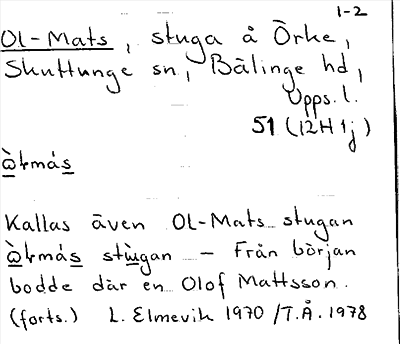 1-2
Ol-Mats, stuga å Örke,
Skuttunge sn, Bälinge hd,
Upps. l.
51 (12H 1j)
ὼⱡmás
Kallas även Ol-Mats stugan
ὼⱡmás stɯ̀gan – Från början
bodde där en Olof Mattsson.
(forts.) L. Elmevik 1970 /T.Å. 1978